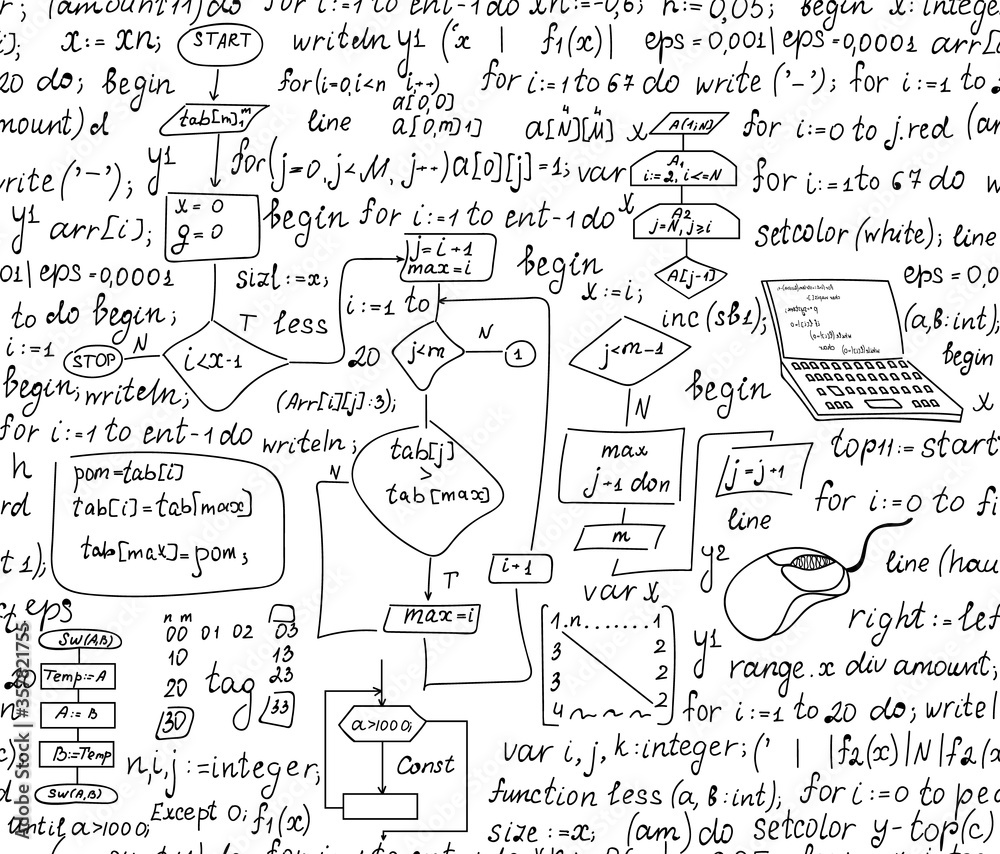 for i:=1 to ent-1 do xn:=-0,6; h:=0,05; begin x: intege
x:= xn; START writeln y1 (‘x | f1(x)| eps=0,001| eps=0,0001 arr[i
20 do; begin for(i=0,i<n i++) for i:=1 to 67 do write (’-’); for i:=1 to
a[0,0]
mount) d tab[m]1m line a[0,m]1] a[N][M] x A(1;N) for i:=0 to j.red (ar
4 4
write (’-’); y1 for(j=0,j<M, j++) a[0][j]=1; var A1 i:=2, i<=N for i:=1 to 67 do w
y1 arr[i]; x = 0 begin for i:=1 to ent-1 do x A2 j=N, j≥i setcolor (white); line
g = 0
01| eps=0,0001 sizl:=x; j=i+1 begin A[j-1] eps=0,0
max=i
x:=i;
to do begin; T less i:=1 to inc(sb1); (a,b:int);
i:=1 STOP N i<x-1 20 j<m N 1 j<m-1 begin
begin; writeln; (Arr[i][j]:3); N begin x
for i:=1 to ent-1 do writeln; tab[j] max top11:= start
>
tab[max] j+1 don j=j+1
h pom=tab[i] N for i:=0 to fi
rd tab[i]=tab|max] m line
t1); tab[max]=pom; T i+1 y2 line (hau
var x
eps max=i 1.n.......1 right:= lef
Sw(A,B) n m 3 2 y1
00 01 02 03 3 2 range.x div amount;
Temp:=A 10 13 2
20 tag 23 4 2
A:= B 30 33 for i:=1 to 20 do; write
a>1000; var i, j, k:integer; (’ | |f2(x)|N|f2(x
B:=Temp n,i,j:=integer; Const
Sw(A,B) function less (a, b:int); for i:=0 to
Until a>1000; Except 0; f1(x) size:=x; (am) do setcolor y-top(c)
Adobe Stock | #359821755